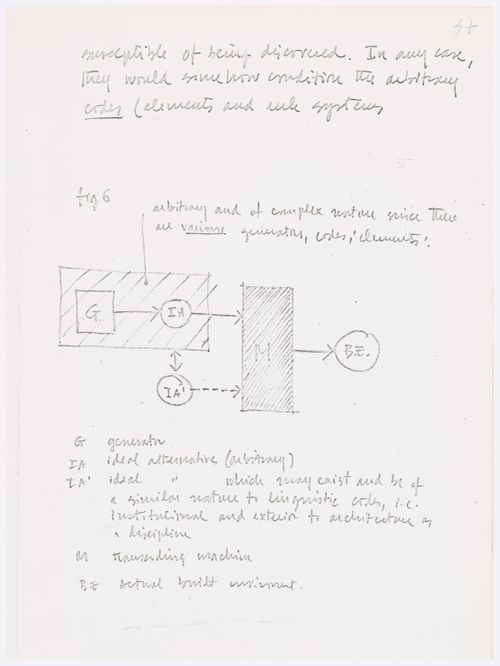 37
susceptible of being discovered. In any case,
they would somehow condition the arbitrary
codes (elements and rule systems
fig 6
arbitrary and of complex nature since there
are various generators, codes, 'elements'.
G
IA
M
B.E.
IA'
G generator
IA ideal alternatives (arbitrary)
IA' ideal " which may exist and be of
a similar nature to linguistic codes, i.e.
institutional and exterior to architecture as
a discipline
M transcoding machine
B.E Actual built enviroment.